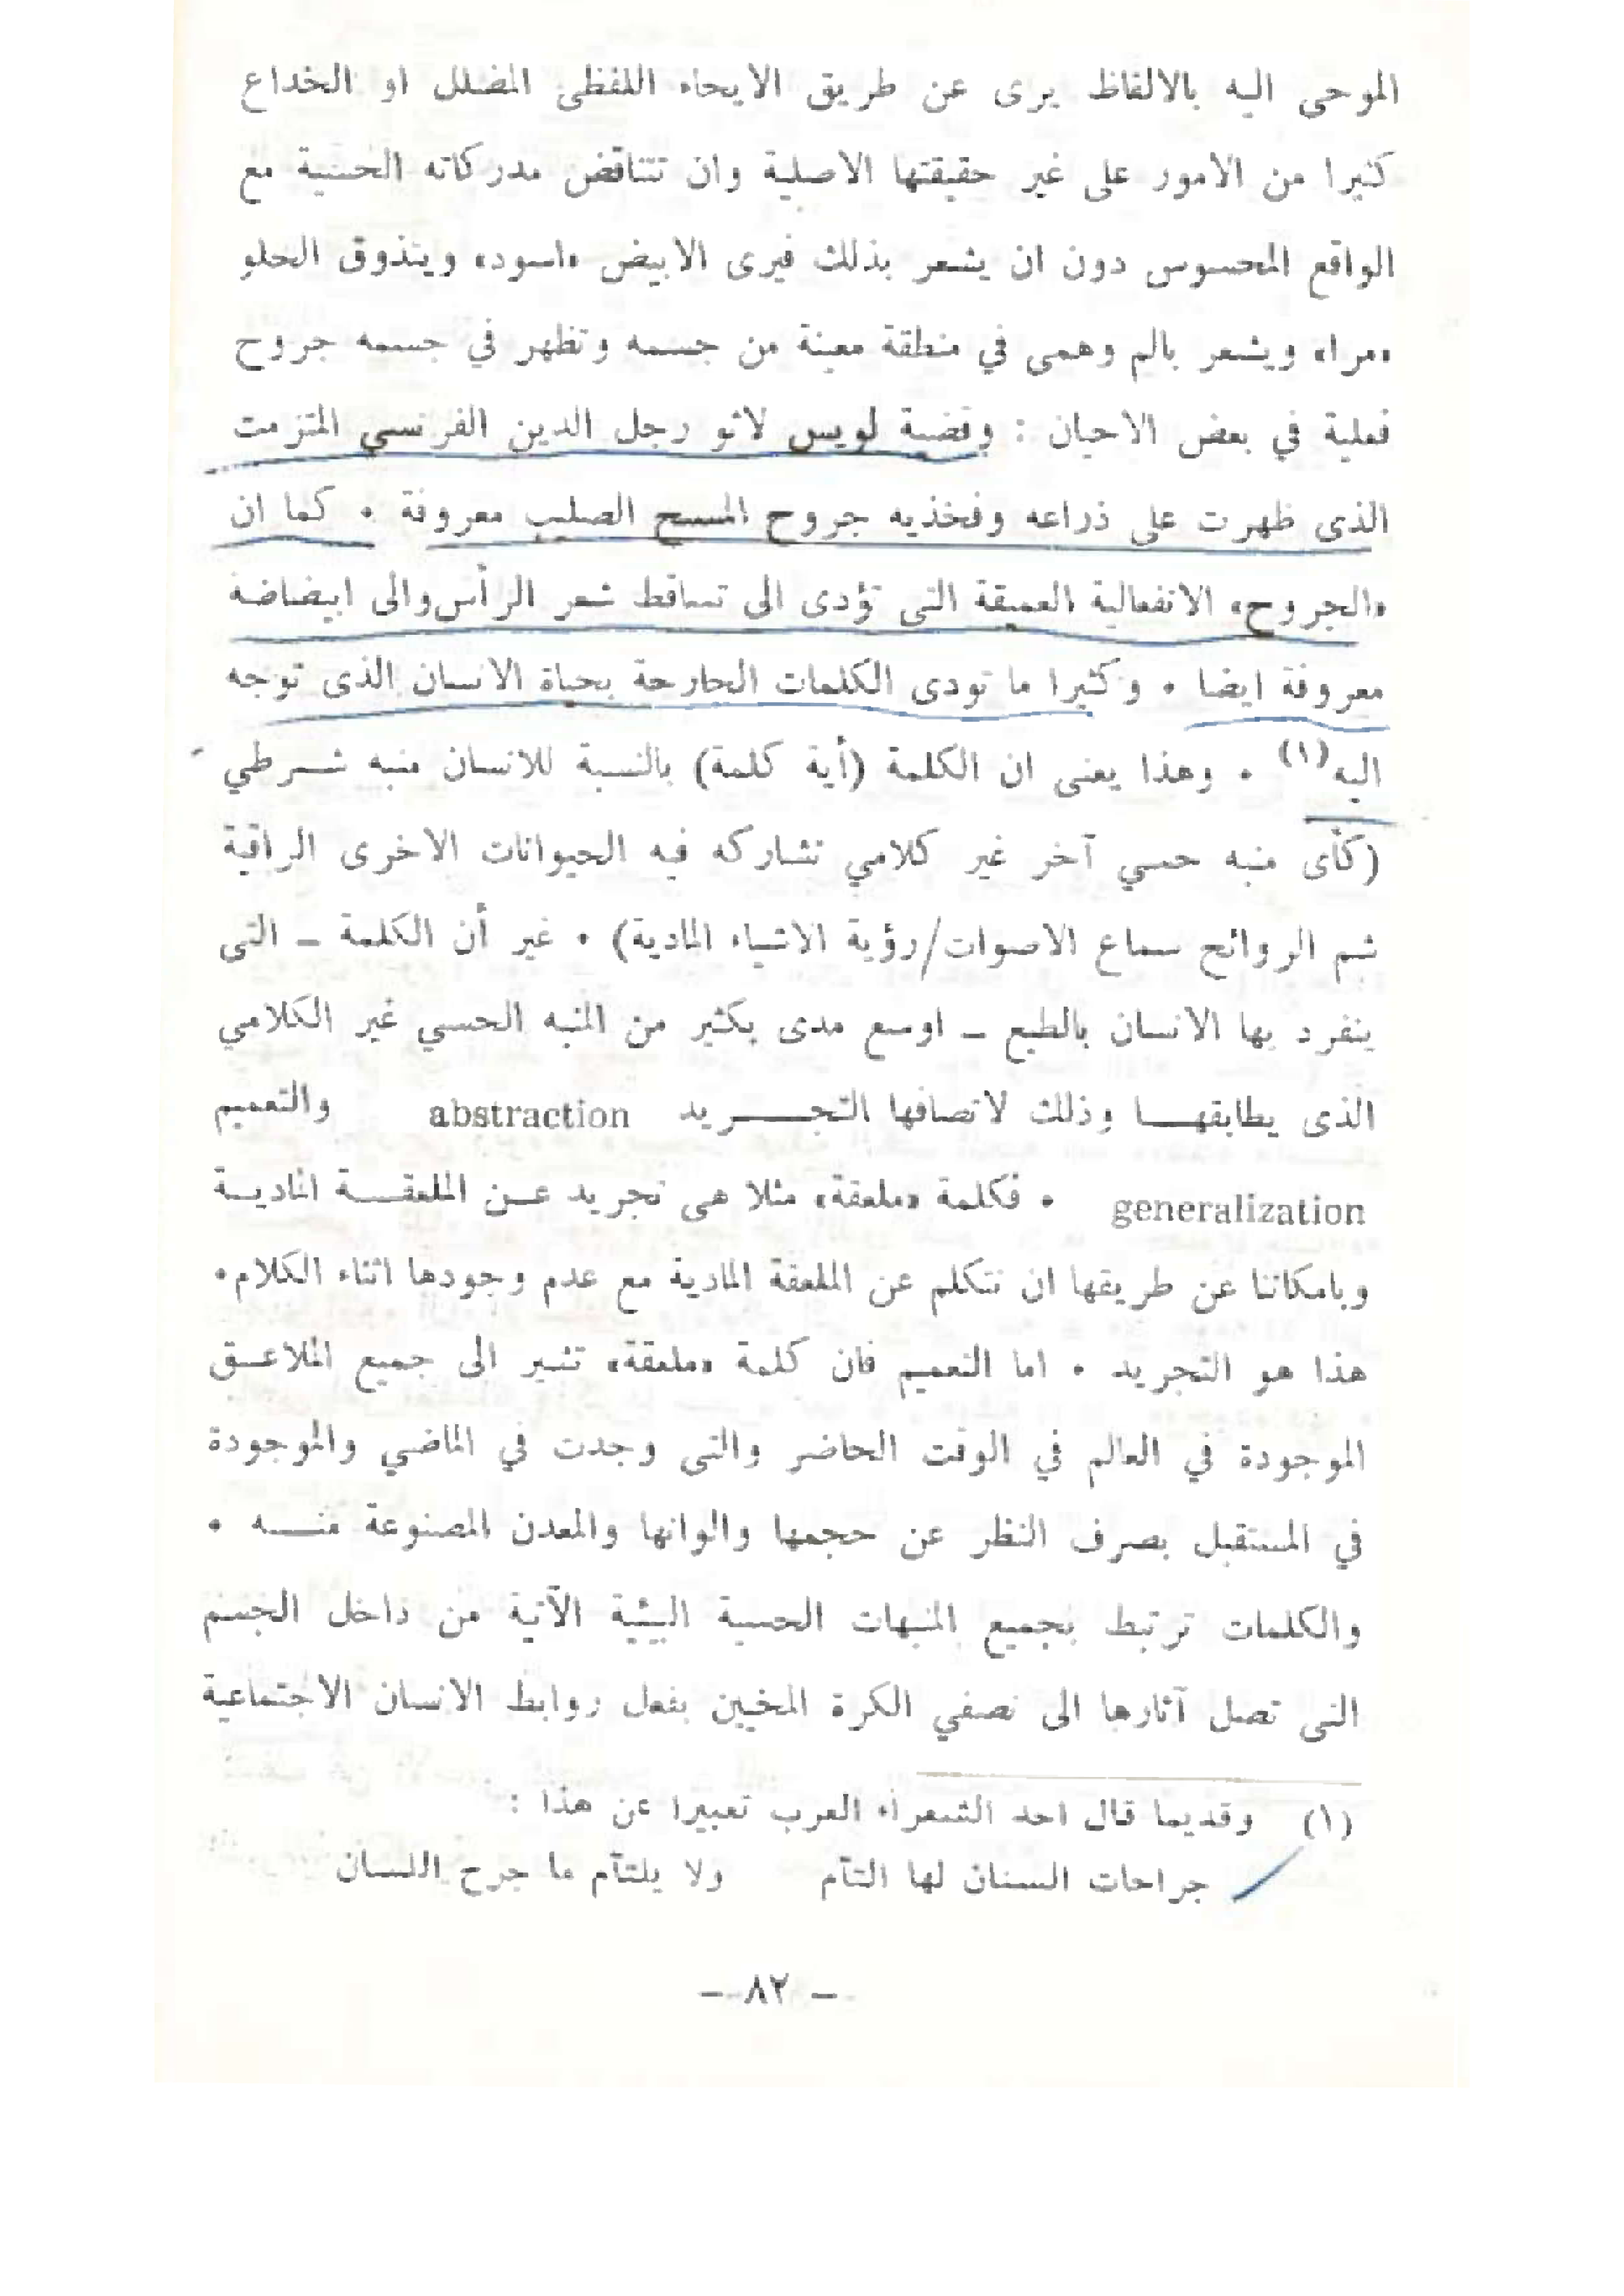 الموحى اليه بالالفاظ يرى عن طريق الايحاء اللفظى المضلل او الخداع
كثيرا من الامور على غير حقيقتها الاصلية وان تتناقض مدركاته الحسية مع
الواقع المحسوس دون ان يشعر بذلك فيرى الابيض «اسود» ويتذوق الحلو
«مرا» ويشعر بالم وهمى في منطقة معينة من جسمه وتظهر في جسمه جروح
فعلية في بعض الاحيان : وقضية لويس لاتو رجل الدين الفرنسي المتزمت
الذى ظهرت على ذراعه وفخذيه جروح المسيح الصليب معروفة • كما ان
«الجروح» الانفعالية العميقة التى تؤدى الى تساقط شعر الرأس والى ابيضاضه
معروفة ايضا • وكثيرا ما تودى الكلمات الجارحة بحياة الانسان الذى توجه
اليه (١) • وهذا يعنى ان الكلمة (أية كلمة) بالنسبة للانسان منبه شـرطي
(كأى منبه حسي آخر غير كلامي تشاركه فيه الحيوانات الاخرى الراقية
شم الروائح سماع الاصوات/رؤية الاشياء المادية) • غير أن الكلمة ــ التى
ينفرد بها الانسان بالطبع ــ اوسع مدى بكثير من المنبه الحسي غير الكلامي
الذى يطابقهـــا وذلك لاتصافها التجـــريد abstraction والتعميم
generalization • فكلمة «ملعقة» مثلا هى تجريد عـن الملعقـــة الماديـة
وبامكاننا عن طريقها ان نتكلم عن الملعقة المادية مع عدم وجودها اثناء الكلام•
هذا هو التجريد • اما التعميم فان كلمة «ملعقة» تشير الى جميع الملاعـق
الموجودة في العالم في الوقت الحاضر والتى وجدت في الماضي والموجودة
في المستقبل بصرف النظر عن حجمها والوانها والمعدن المصنوعة منـــه •
والكلمات ترتبط بجميع المنبهات الحسية البيئية الآتية من داخل الجسم
التى تصل آثارها الى نصفي الكرة المخيين بفعل روابط الانسان الاجتماعية
(١) وقديما قال احد الشعراء العرب تعبيرا عن هذا :
جراحات السنان لها التآم ولا يلتآم ما جرح اللسان
ــ ٨٢ ــ